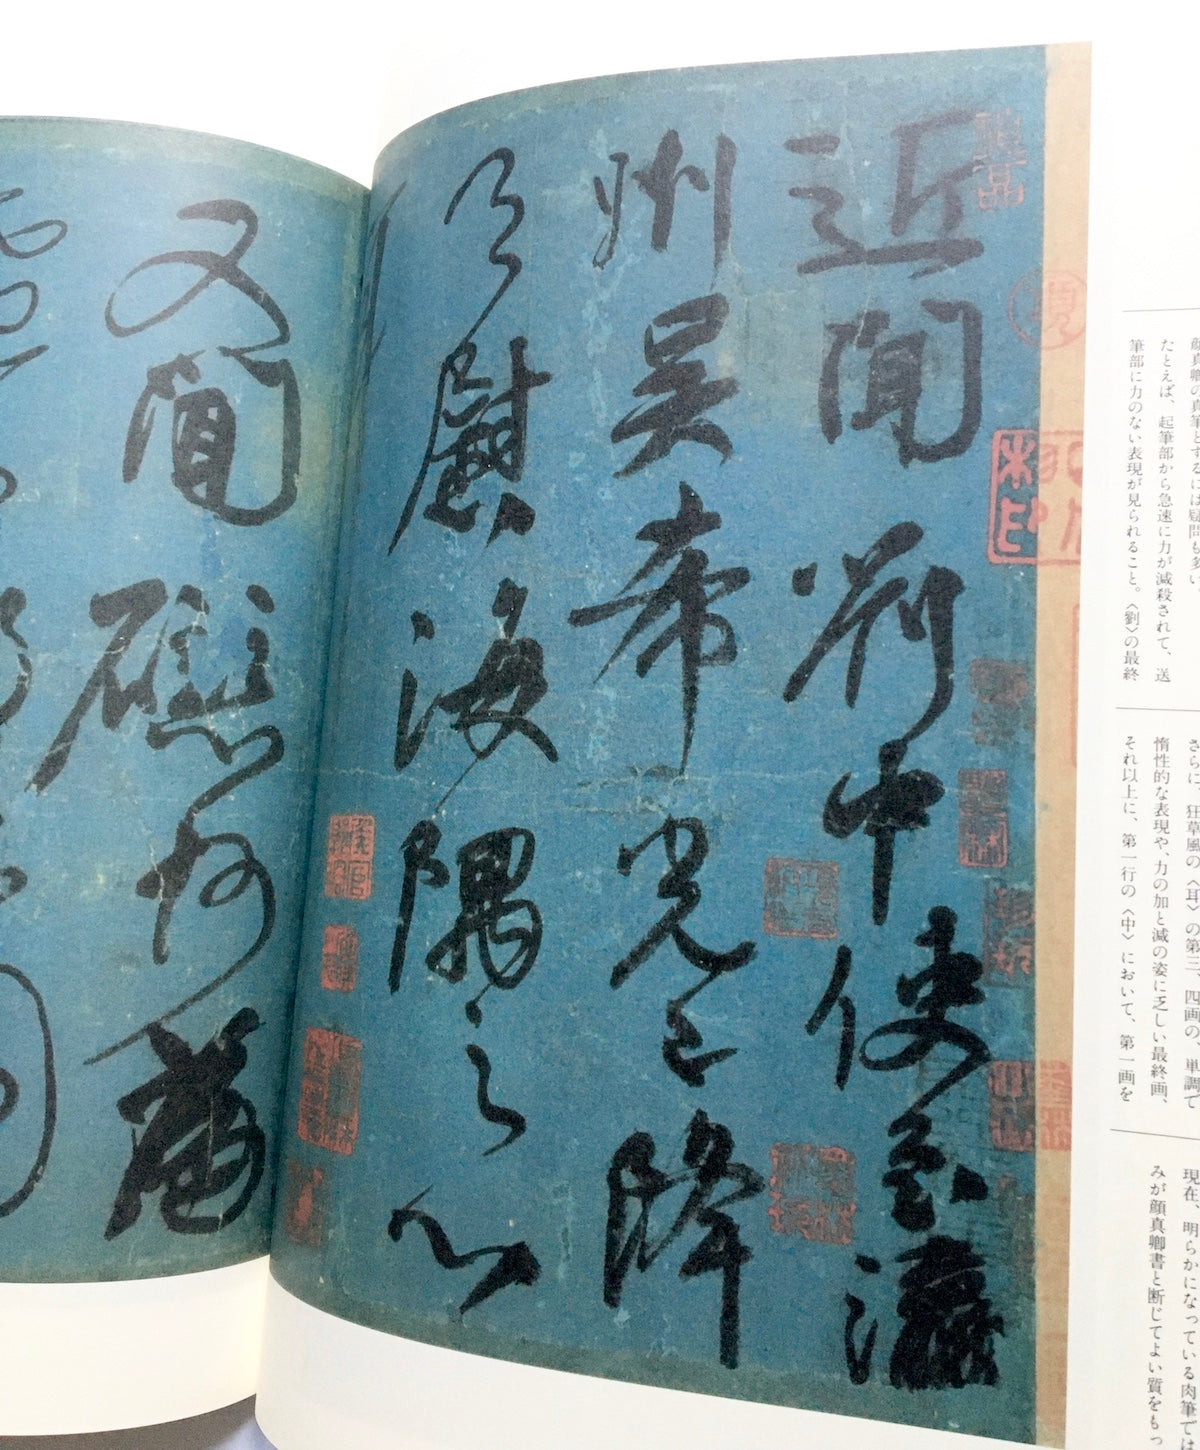 顔真卿の真筆とするには疑問も多い
たとえば、起筆部から急速に力が減殺されて、送
筆部に力のない表現が見られること。〈劉〉の最終
さらに、狂草風の〈耳〉の第三、四画の、単調で
惰性的な表現や、力の加と減の姿に乏しい最終画、
それ以上に、第一行の〈中〉において、第一画を
現在、明らかになっている肉筆では
みが顔真卿書と断じてよい質をもっ
近聞劉中使至瀛
州吳希光已降
足慰海隅之心
又聞磁州為